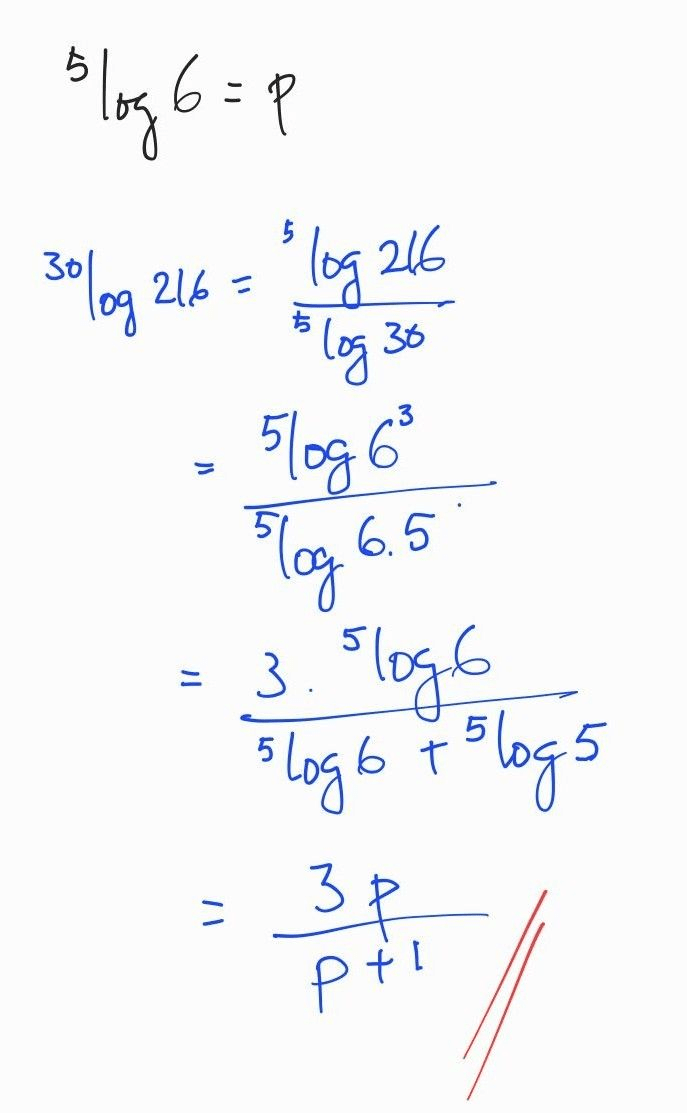 ⁵log 6 = p
³⁰log 216 = ⁵log 216 / ⁵log 30
= ⁵log 6³ / ⁵log 6.5
= 3. ⁵log 6 / ⁵log 6 + ⁵log 5
= 3p / p + 1